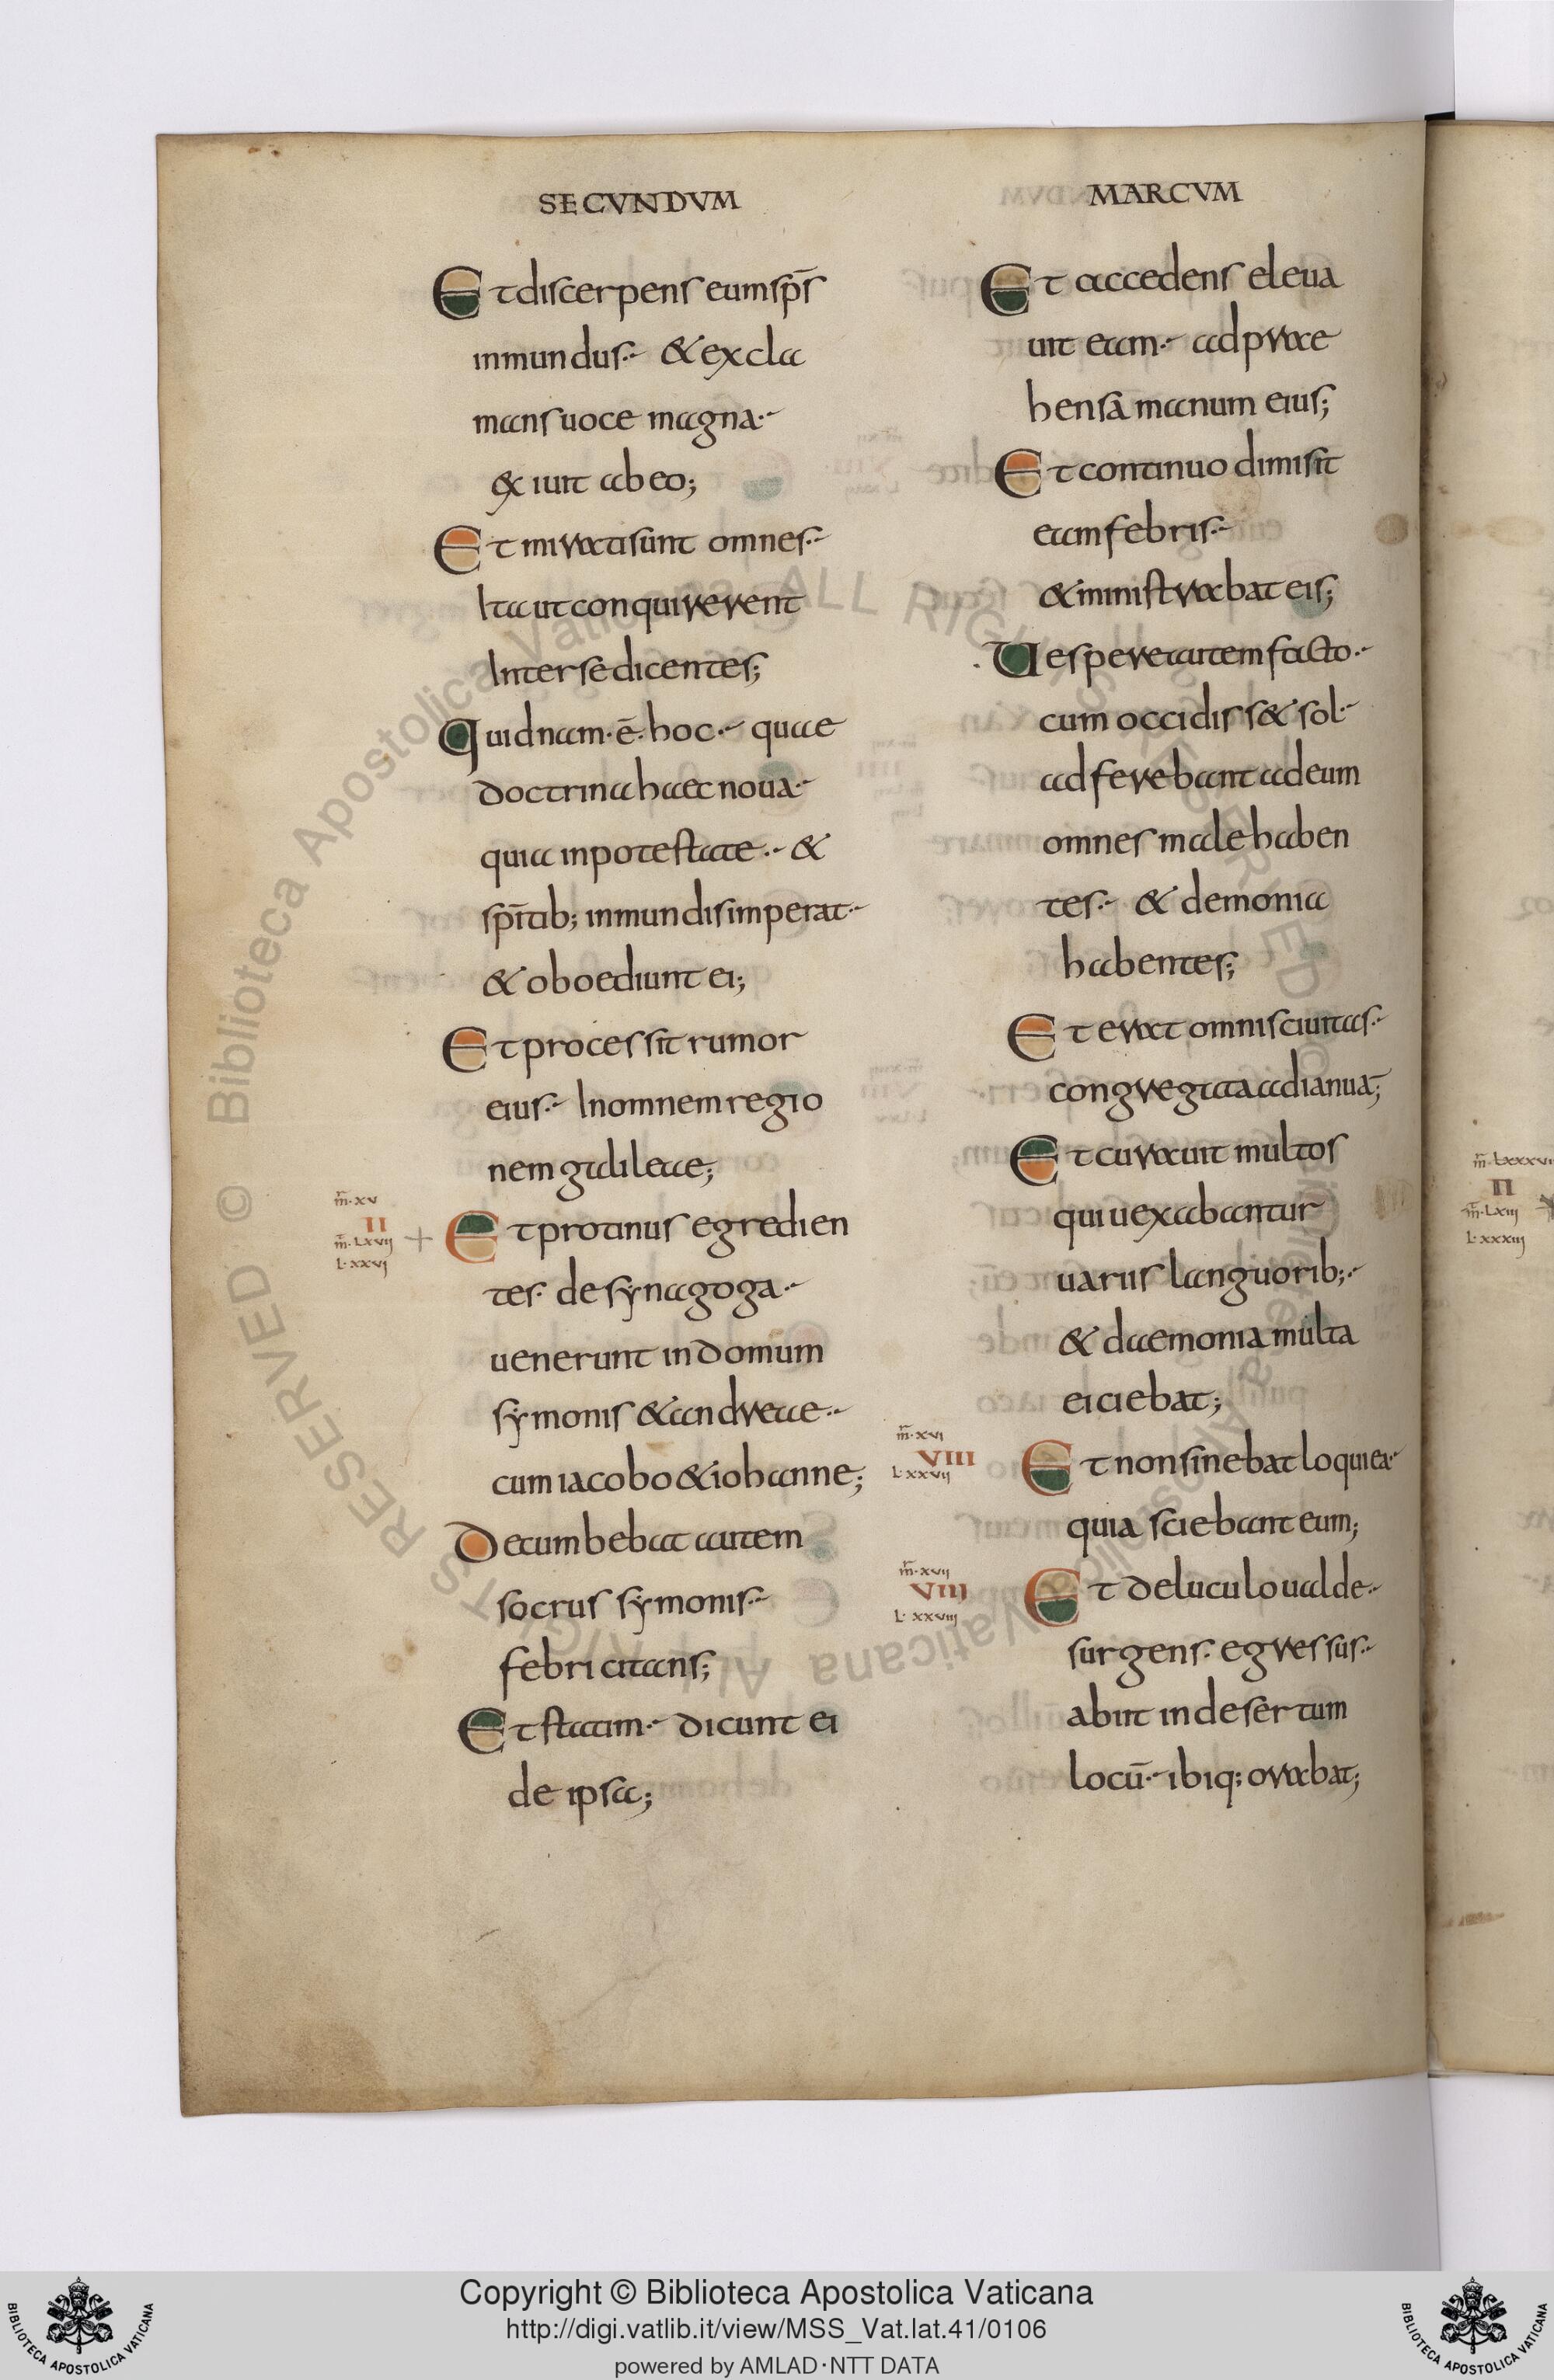 SECVNDVM
Et discerpens eum sp̄s
inmundus·- & excla
mans uoce magna·-
exiuit ab eo;
Et mirati sunt omnes·-
Ita ut conquirerent
Inter se dicentes;
Quidnam·ē·hoc·- quae
doctrina haec noua·-
quia in potestate·- &
sp̄itib; inmundis imperat·-
& oboediunt ei;
Et processit rumor
eius·- In omnem regio
nem galileae;
m̄·xv
II
m̄·Lxvij
L·xxvj
+
Et protinus egredien
tes· de synagoga·-
uenerunt in domum
symonis & andreae·-
cum iacobo & iohanne;
Decumbebat autem
socrus symonis·-
febricitans;
Et statim·- dicunt ei
de ipsa;
MARCVM
Et accedens eleua
uit eam·- adprae
hensā manum eius;
Et continuo dimisit
eam febris·-
& ministrabat eis;
Uespere autem facto·-
cum occidiss& sol·-
adferebant ad eum
omnes male haben
tes·- & demonia
habentes;
Et erat omnis ciuitas·-
congregata ad ianuā;
Et curauit multos
qui uexabantur
uariis languorib;·-
& daemonia multa
eiciebat;
m̄·xvi
VIII
L·xxvij
Et non sinebat loqui ea·-
quia sciebant eum;
m̄·xvij
VIII
L·xxviij
Et deluculo ualde·-
surgens· egressus·-
abiit in desertum
locū·- ibiq; orabat;
m̄·Lxxxvi
II
m̄·Lxiij
L·xxxiij
© Biblioteca Apostolica Vaticana ALL RIGHTS RESERVED
Copyright © Biblioteca Apostolica Vaticana
http://digi.vatlib.it/view/MSS_Vat.lat.41/0106
powered by AMLAD·NTT DATA
BIBLIOTECA APOSTOLICA VATICANA
BIBLIOTECA APOSTOLICA VATICANA